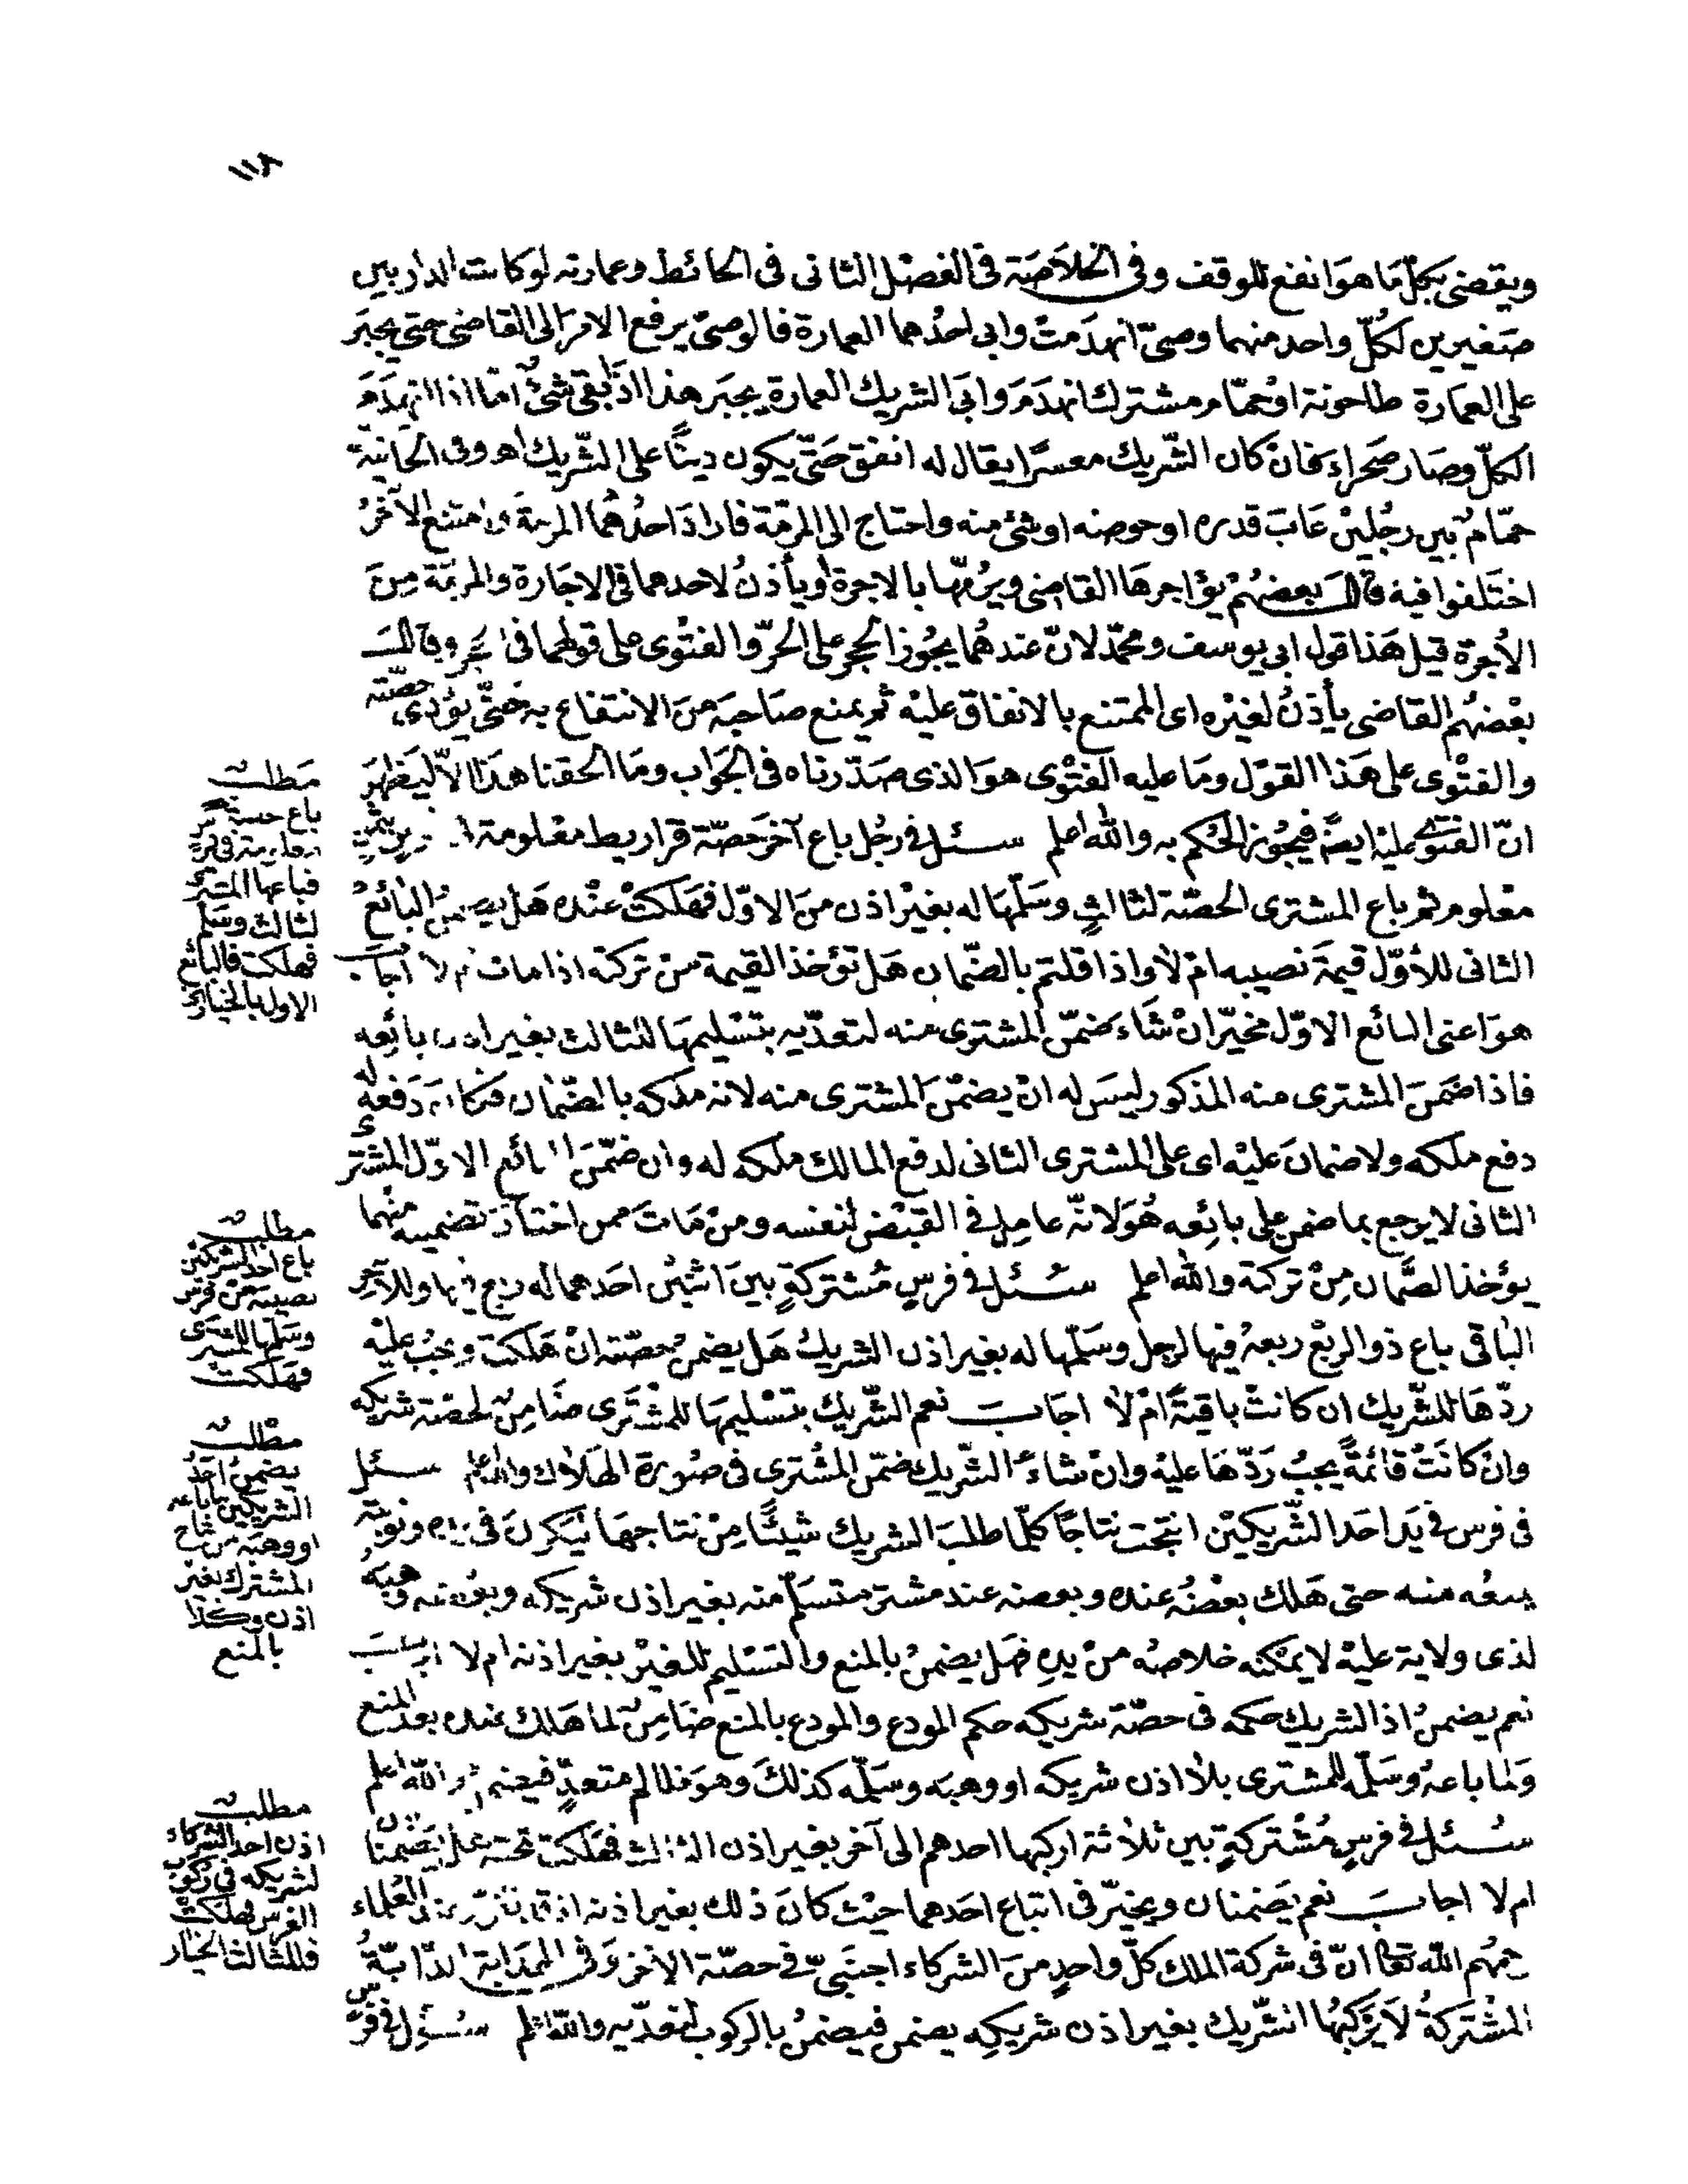 ١١٢
ويقضى بكل ما هو انفع للوقف وفى الخلاصة فى الفصل الثانى فى الحائط وعمارته لو كانت الدار بين
صغيرين لكل واحد منهما وصى انهدمت وابى احدهما العمارة فالوصى يرفع الامر الى القاضى حتى يجبر
على العمارة طاحونة او حمام مشترك انهدم وابى الشريك العمارة يجبر هذا اذا بقى شئ اما اذا انهدم
الكل وصار صحراء فان كان الشريك معسرا يقال له انفق حتى يكون دينا على الشريك اهـ وفى الخانية
حمام بين رجلين غاب قدره او حوضه او شئ منه واحتاج الى المرمة فاراد احدهما المرمة وامتنع الآخر
اختلفوا فيه قال بعضهم يؤاجرها القاضى ويرمها بالاجرة او يأذن لاحدهما فى الاجارة والمرمة من
الأجرة قيل هذا قول ابى يوسف ومحمد لان عندهما يجوز الحجر على الحر والفتوى على قولهما فى الحجر وقال
بعضهم القاضى يأذن لغيره اى الممتنع بالانفاق عليه ثم يمنع صاحبه من الانتفاع به حتى يؤدى حصته
والفتوى على هذا القول وما عليه الفتوى هو الذى صدرناه فى الجواب وما الحقنا هذا الا ليظهر
ان الفتوى عليه ايضا فيجوز الحكم به والله اعلم سئل فى رجل باع آخر حصة قراريط معلومة بثمن
معلوم ثم باع المشترى الحصة لثالث وسلمها له بغير اذن من الاول فهلكت عنده هل يضمن البائع
الثانى للأول قيمة نصيبه ام لا واذا قلتم بالضمان هل تؤخذ القيمة من تركته اذا مات ام لا اجاب
هو اعنى البائع الاول مخير ان شاء ضمن المشترى منه لتعديه بتسليمها للثالث بغير اذن بائعه
فاذا ضمن المشترى منه المذكور ليس له ان يضمن المشترى منه لانه ملكه بالضمان فكانه دفعه له
دفع ملكه ولا ضمان عليه اى على المشترى الثانى لدفع المالك ملكه له وان ضمن البائع الاول المشترى
الثانى لا يرجع بما ضمن على بائعه هو لانه عامل فى القبض لنفسه ومن مات ممن اختار تضمينه منهما
يؤخذ الضمان من تركته والله اعلم سئل فى فرس مشتركة بين اثنين احدهما له ربع فيها وللآخر
الباقى باع ذو الربع ربعه فيها لرجل وسلمها له بغير اذن الشريك هل يضمن حصته ان هلكت ويجب عليه
ردها للشريك ان كانت باقية ام لا اجاب نعم الشريك بتسليمها للمشترى ضامن لحصة شريكه
وان كانت قائمة يجب ردها عليه وان شاء الشريك ضمن المشترى فى صورة الهلاك والله اعلم سئل
فى فرس فى يد احد الشريكين انتجت نتاجا كلما طلب الشريك شيئا من نتاجها ليكون فى يده ونوبته
يمنعه منه حتى هلك بعضه عنده وبعضه عند مشتر متسلم منه بغير اذن شريكه وبعضه وهبه
لذى ولاية عليه لا يمكنه خلاصه من يده فهل يضمن بالمنع والتسليم للغير بغير اذنه ام لا اجاب
نعم يضمن اذ الشريك حكمه فى حصة شريكه حكم المودع والمودع بالمنع ضامن لما هلك عنده بعد المنع
ولما باعه وسلمه للمشترى بلا اذن شريكه او وهبه وسلمه كذلك وهو ظالم متعد فيضمن والله اعلم
سئل فى فرس مشتركة بين ثلاثة اركبها احدهم الى آخر بغير اذن الثالث فهلكت تحته هل يضمنان
ام لا اجاب نعم يضمنان ويخير فى اتباع احدهما حيث كان ذلك بغير اذنه اذ العلماء
رحمهم الله تعالى ان فى شركة الملك كل واحد من الشركاء اجنبى فى حصة الآخر وفى الهداية الدابة
المشتركة لا يركبها الشريك بغير اذن شريكه يضمن فيضمن بالركوب لتعديه والله اعلم سئل فى فرس
مطلب
باع حصة
معلومة فى
فباعها المشترى
لثالث وسلم
فهلكت فالبائع
الاول بالخيار
مطلب
باع احد الشريكين
نصيبه من فرس
وسلمها للمشترى
فهلكت
مطلب
يضمن احد
الشريكين ما باعه
او وهبه من نتاج
المشترك بغير
اذن وكذا
بالمنع
مطلب
اذن احد الشركاء
لشريكه فى ركوب
الفرس فهلكت
فللثالث الخيار